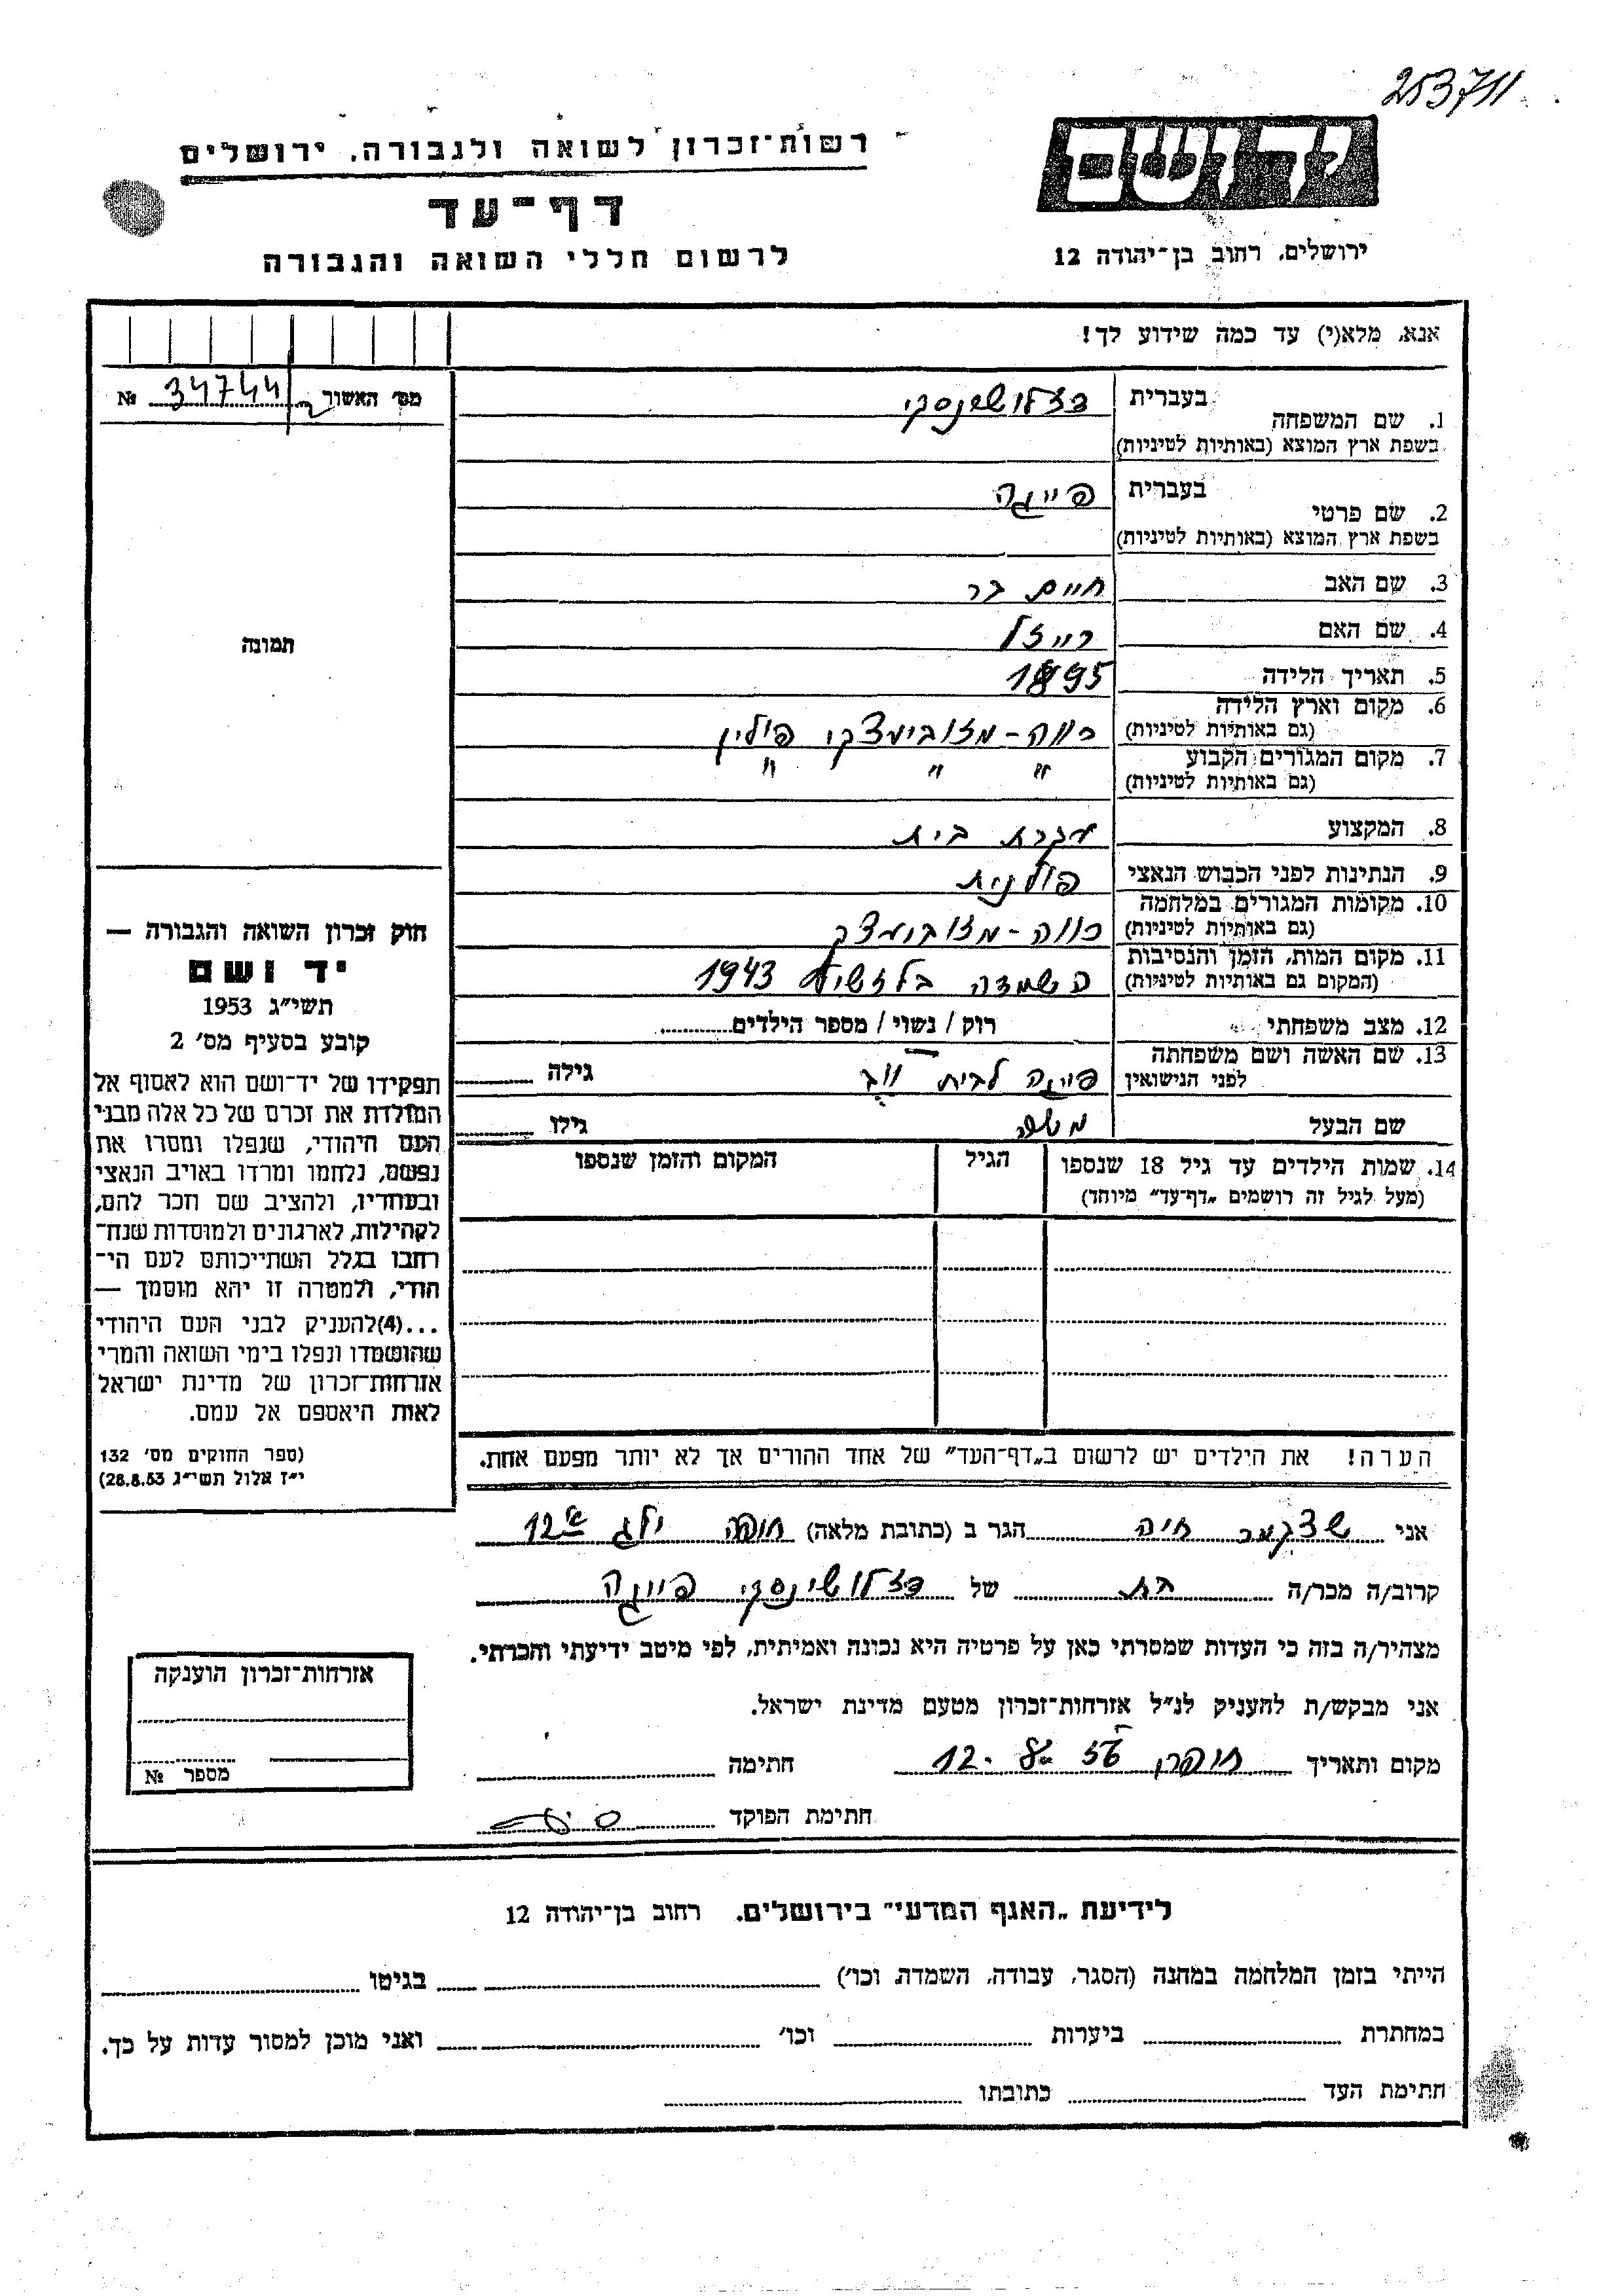 253711
יד ושם
רשות־זכרון לשואה ולגבורה, ירושלים
דף־עד
לרשום חללי השואה והגבורה
ירושלים, רחוב בן־יהודה 12
אנא, מלא(י) עד כמה שידוע לך!
מס׳ האשור 34744 №
תמונה
1. שם המשפחה בעברית
בשפת ארץ המוצא (באותיות לטיניות)
2. שם פרטי בעברית פייגה
בשפת ארץ המוצא (באותיות לטיניות)
3. שם האב חיים בר
4. שם האם רייזל
5. תאריך הלידה 1895
6. מקום וארץ הלידה רווה-מזובייצקי פולין
(גם באותיות לטיניות)
7. מקום המגורים הקבוע " " "
(גם באותיות לטיניות)
8. המקצוע עקרת בית
9. הנתינות לפני הכבוש הנאצי פולנית
10. מקומות המגורים במלחמה רווה-מזוביצק
(גם באותיות לטיניות)
11. מקום המות, הזמן והנסיבות השמדה 1943
(המקום גם באותיות לטיניות)
12. מצב משפחתי רוק / נשוי / מספר הילדים
13. שם האשה ושם משפחתה פייגה לבית גילה
לפני הנישואין
שם הבעל משה גילו
14. שמות הילדים עד גיל 18 שנספו הגיל המקום והזמן שנספו
(מעל לגיל זה רושמים „דף־עד״ מיוחד)
חוק זכרון השואה והגבורה —
יד ושם
תשי״ג 1953
קובע בסעיף מס׳ 2
תפקידו של יד־ושם הוא לאסוף אל
המולדת את זכרם של כל אלה מבני
העם היהודי, שנפלו ומסרו את
נפשם, נלחמו ומרדו באויב הנאצי
ובעוזריו, ולהציב שם וזכר להם,
לקהילות, לארגונים ולמוסדות שנח־
רבו בגלל השתייכותם לעם הי־
הודי, ולמטרה זו יהא מוסמך —
...(4)להעניק לבני העם היהודי
שהושמדו ונפלו בימי השואה והמרי
אזרחות־זכרון של מדינת ישראל
לאות היאספם אל עמם.
(ספר החוקים מס׳ 132
י״ז אלול תשי״ג 28.8.53)
הערה! את הילדים יש לרשום ב„דף־העד״ של אחד ההורים אך לא יותר מפעם אחת.
אני חיה הגר ב (כתובת מלאה) חיפה 12
קרוב/ה מכר/ה בת של פייגה
מצהיר/ה בזה כי העדות שמסרתי כאן על פרטיה היא נכונה ואמיתית, לפי מיטב ידיעתי והכרתי.
אני מבקש/ת להעניק לנ״ל אזרחות־זכרון מטעם מדינת ישראל.
מקום ותאריך 12. חתימה
חתימת הפוקד
אזרחות־זכרון הוענקה
מספר №
לידיעת „האגף המדעי״ בירושלים, רחוב בן־יהודה 12
הייתי בזמן המלחמה במחנה (הסגר, עבודה, השמדה, וכו׳) בגיטו
במחתרת ביערות וכו׳ ואני מוכן למסור עדות על כך.
חתימת העד כתובתו